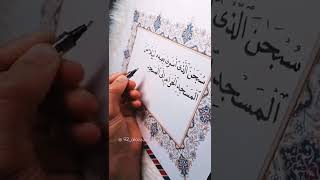 سُبْحٰنَ الَّذِي أَسْرَىٰ بِعَبْدِهِ لَيْلًا مِنَ
الْمَسْجِدِ الْحَرَامِ إِلَى الْمَسْجِدِ
سُبْحٰنَ الَّذِي
الْمَسْجِدِ